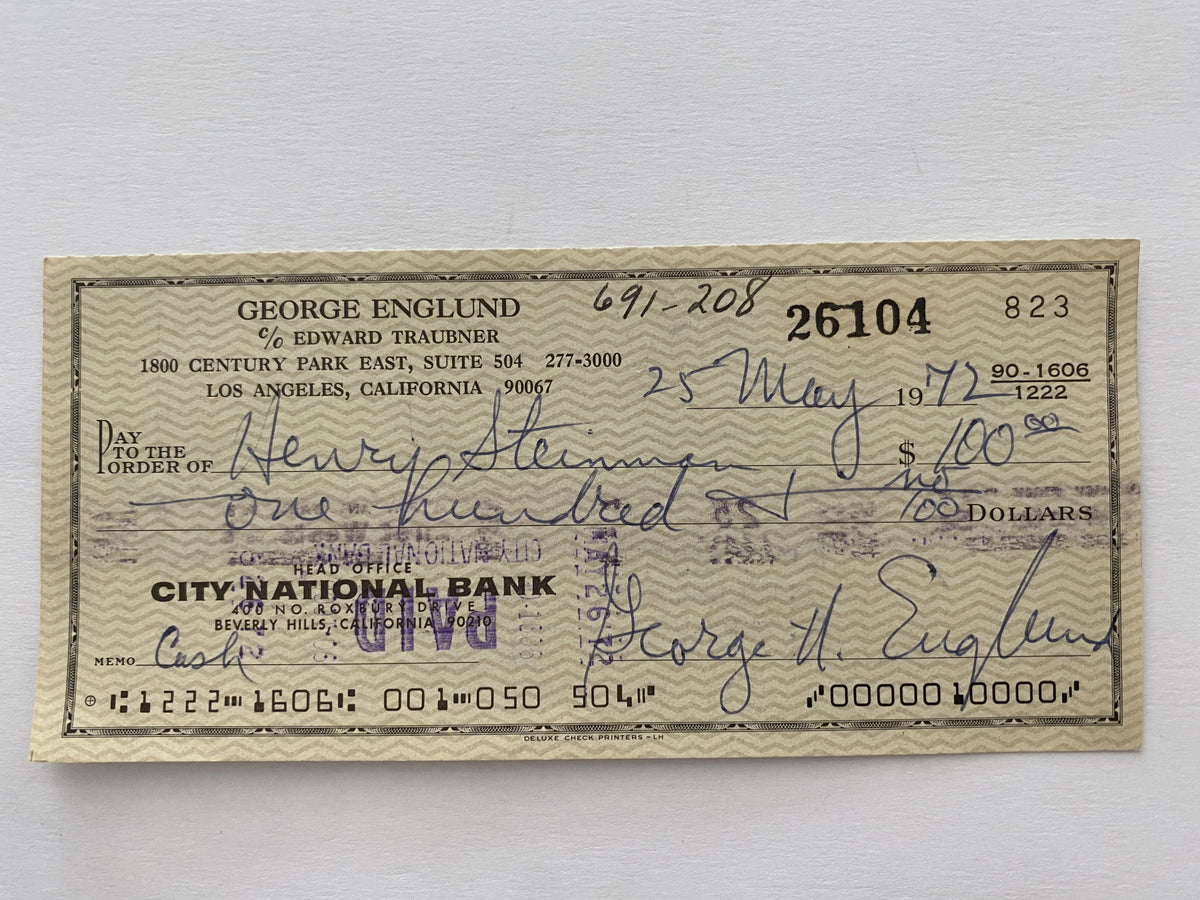 GEORGE ENGLUND
c/o EDWARD TRAUBNER
1800 CENTURY PARK EAST, SUITE 504 277-3000
LOS ANGELES, CALIFORNIA 90067
691-208
26104
823
25 May 1972
90-1606
1222
PAY TO THE ORDER OF Henry Steinman $ 100 00
one hundred & no/100 DOLLARS
CITY NATIONAL BANK
HEAD OFFICE
CITY NATIONAL BANK
400 NO. ROXBURY DRIVE
BEVERLY HILLS, CALIFORNIA 90210
PAID
MAY 26 72
MEMO Cash
George H. Englund
⑆1222⑉1606⑆ 001⑉050 504⑈ ⑊0000010000⑊
DELUXE CHECK PRINTERS - LH